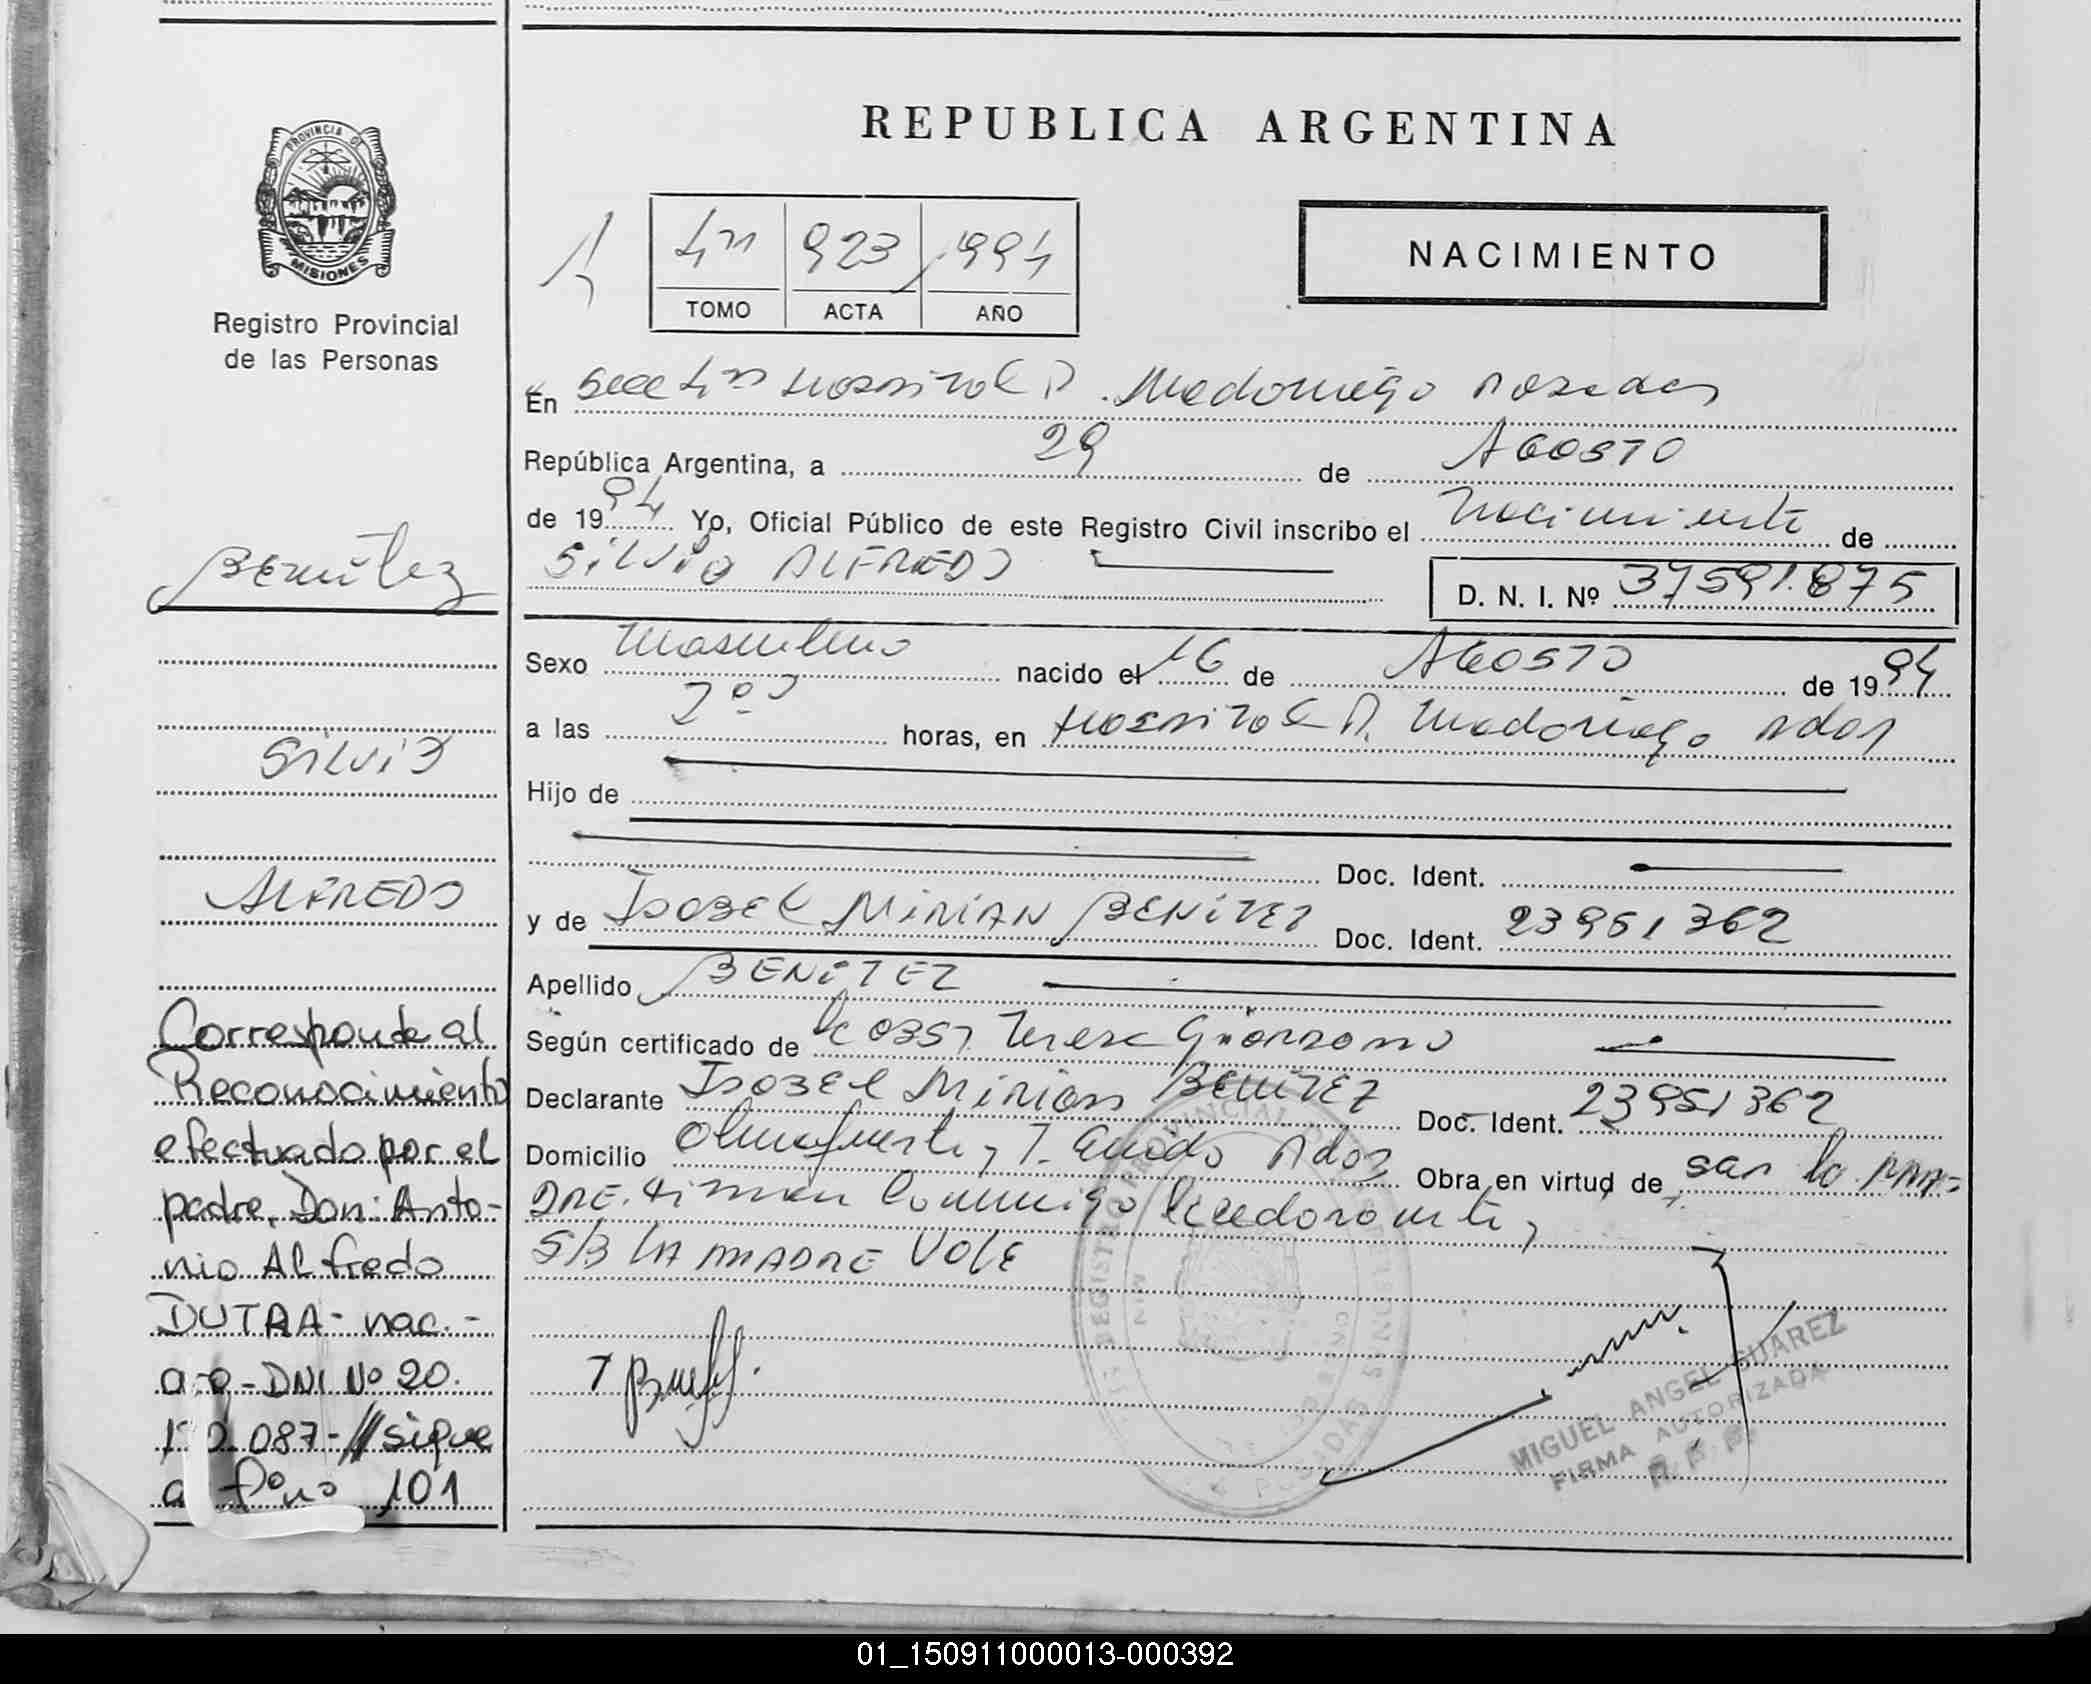 REPUBLICA ARGENTINA
PROVINCIA DE
MISIONES
Registro Provincial
de las Personas
4º 923 1994
TOMO ACTA AÑO
NACIMIENTO
En Secc 4ª Hospital R. Madariaga Posadas
República Argentina, a 29 de AGOSTO
de 1994 Yo, Oficial Público de este Registro Civil inscribo el Nacimiento de
SilviO ALFREDO
D. N. I. Nº 37591.875
Sexo Masculino nacido el 16 de AGOSTO de 1994
a las horas, en Hospital R. Madariaga Pdas
Hijo de
Doc. Ident.
y de ISABEL MIRIAN BENITEZ Doc. Ident. 23951362
Apellido BENITEZ
Según certificado de Obst Teresa
Declarante ISABEL MIRIAN BENITEZ Doc. Ident. 23951362
Domicilio Almafuerte y T. Guido Pdas Obra en virtud de ser la MA=
DRE. Firman Conmigo la declarante,
S/B LA MADRE VALE
Benitez
Silvio
ALFREDO
Corresponde al
Reconocimiento
efectuado por el
padre, Don: Anto-
nio Alfredo
DUTRA- nac.-
DNI Nº 20.
087-// sigue
a fº nº 101
REGISTRO PROVINCIAL DE LAS PERSONAS
POSADAS
MIGUEL ANGEL SUAREZ
FIRMA AUTORIZADA
R. P. P.
01_150911000013-000392